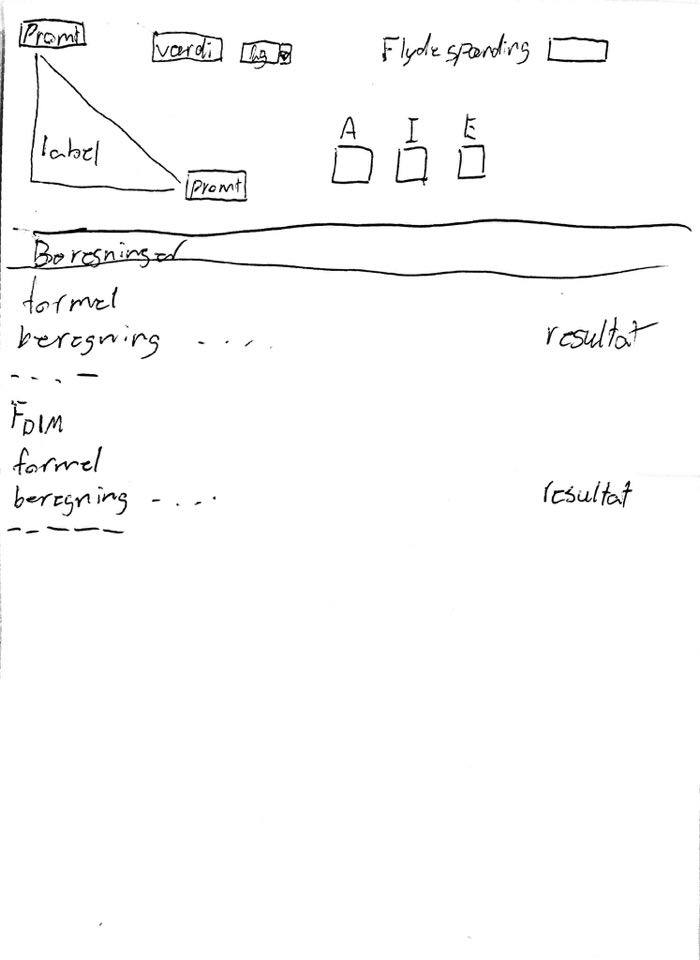 Promt
værdi kg
Flydespænding
label
A I E
Promt
Beregninger
formel
beregning .... resultat
FDIM
formel
beregning .... resultat